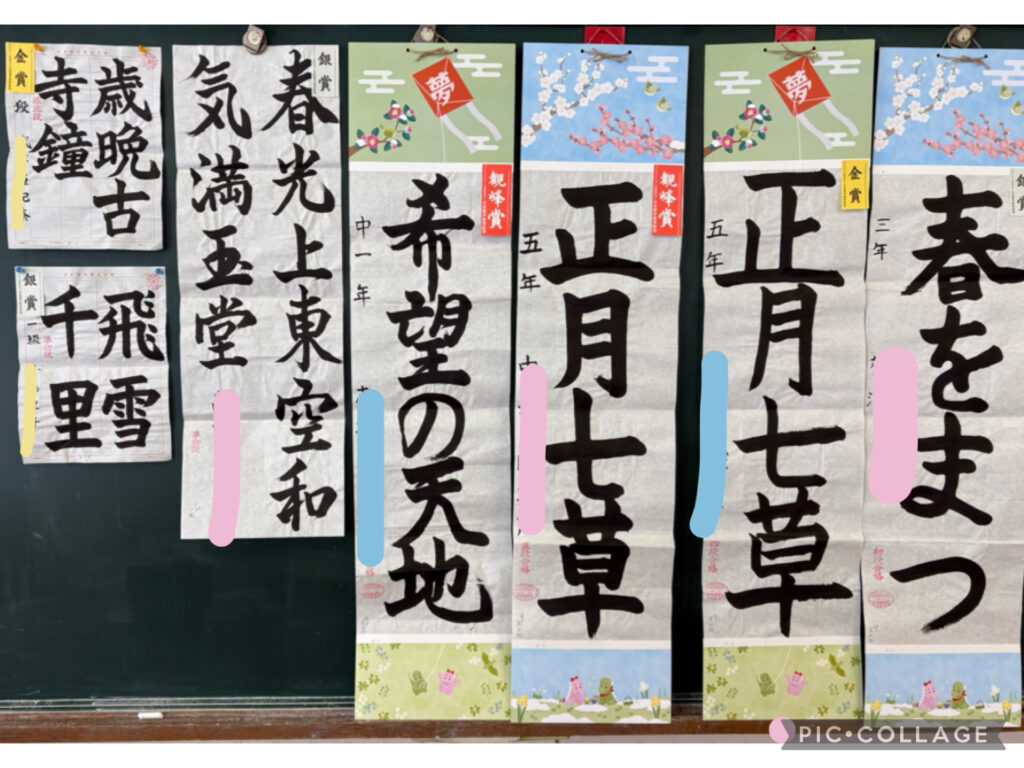 金賞
歳晩古
寺鐘
段
銀賞
飛雪
千里
一級
銀賞
春光上東空和
気満玉堂
準四段
夢
観峰賞
希望の天地
中一年
観峰賞
正月七草
五年
夢
金賞
正月七草
五年
四段合格
銀賞
春をまつ
三年
初段合格
PIC•COLLAGE